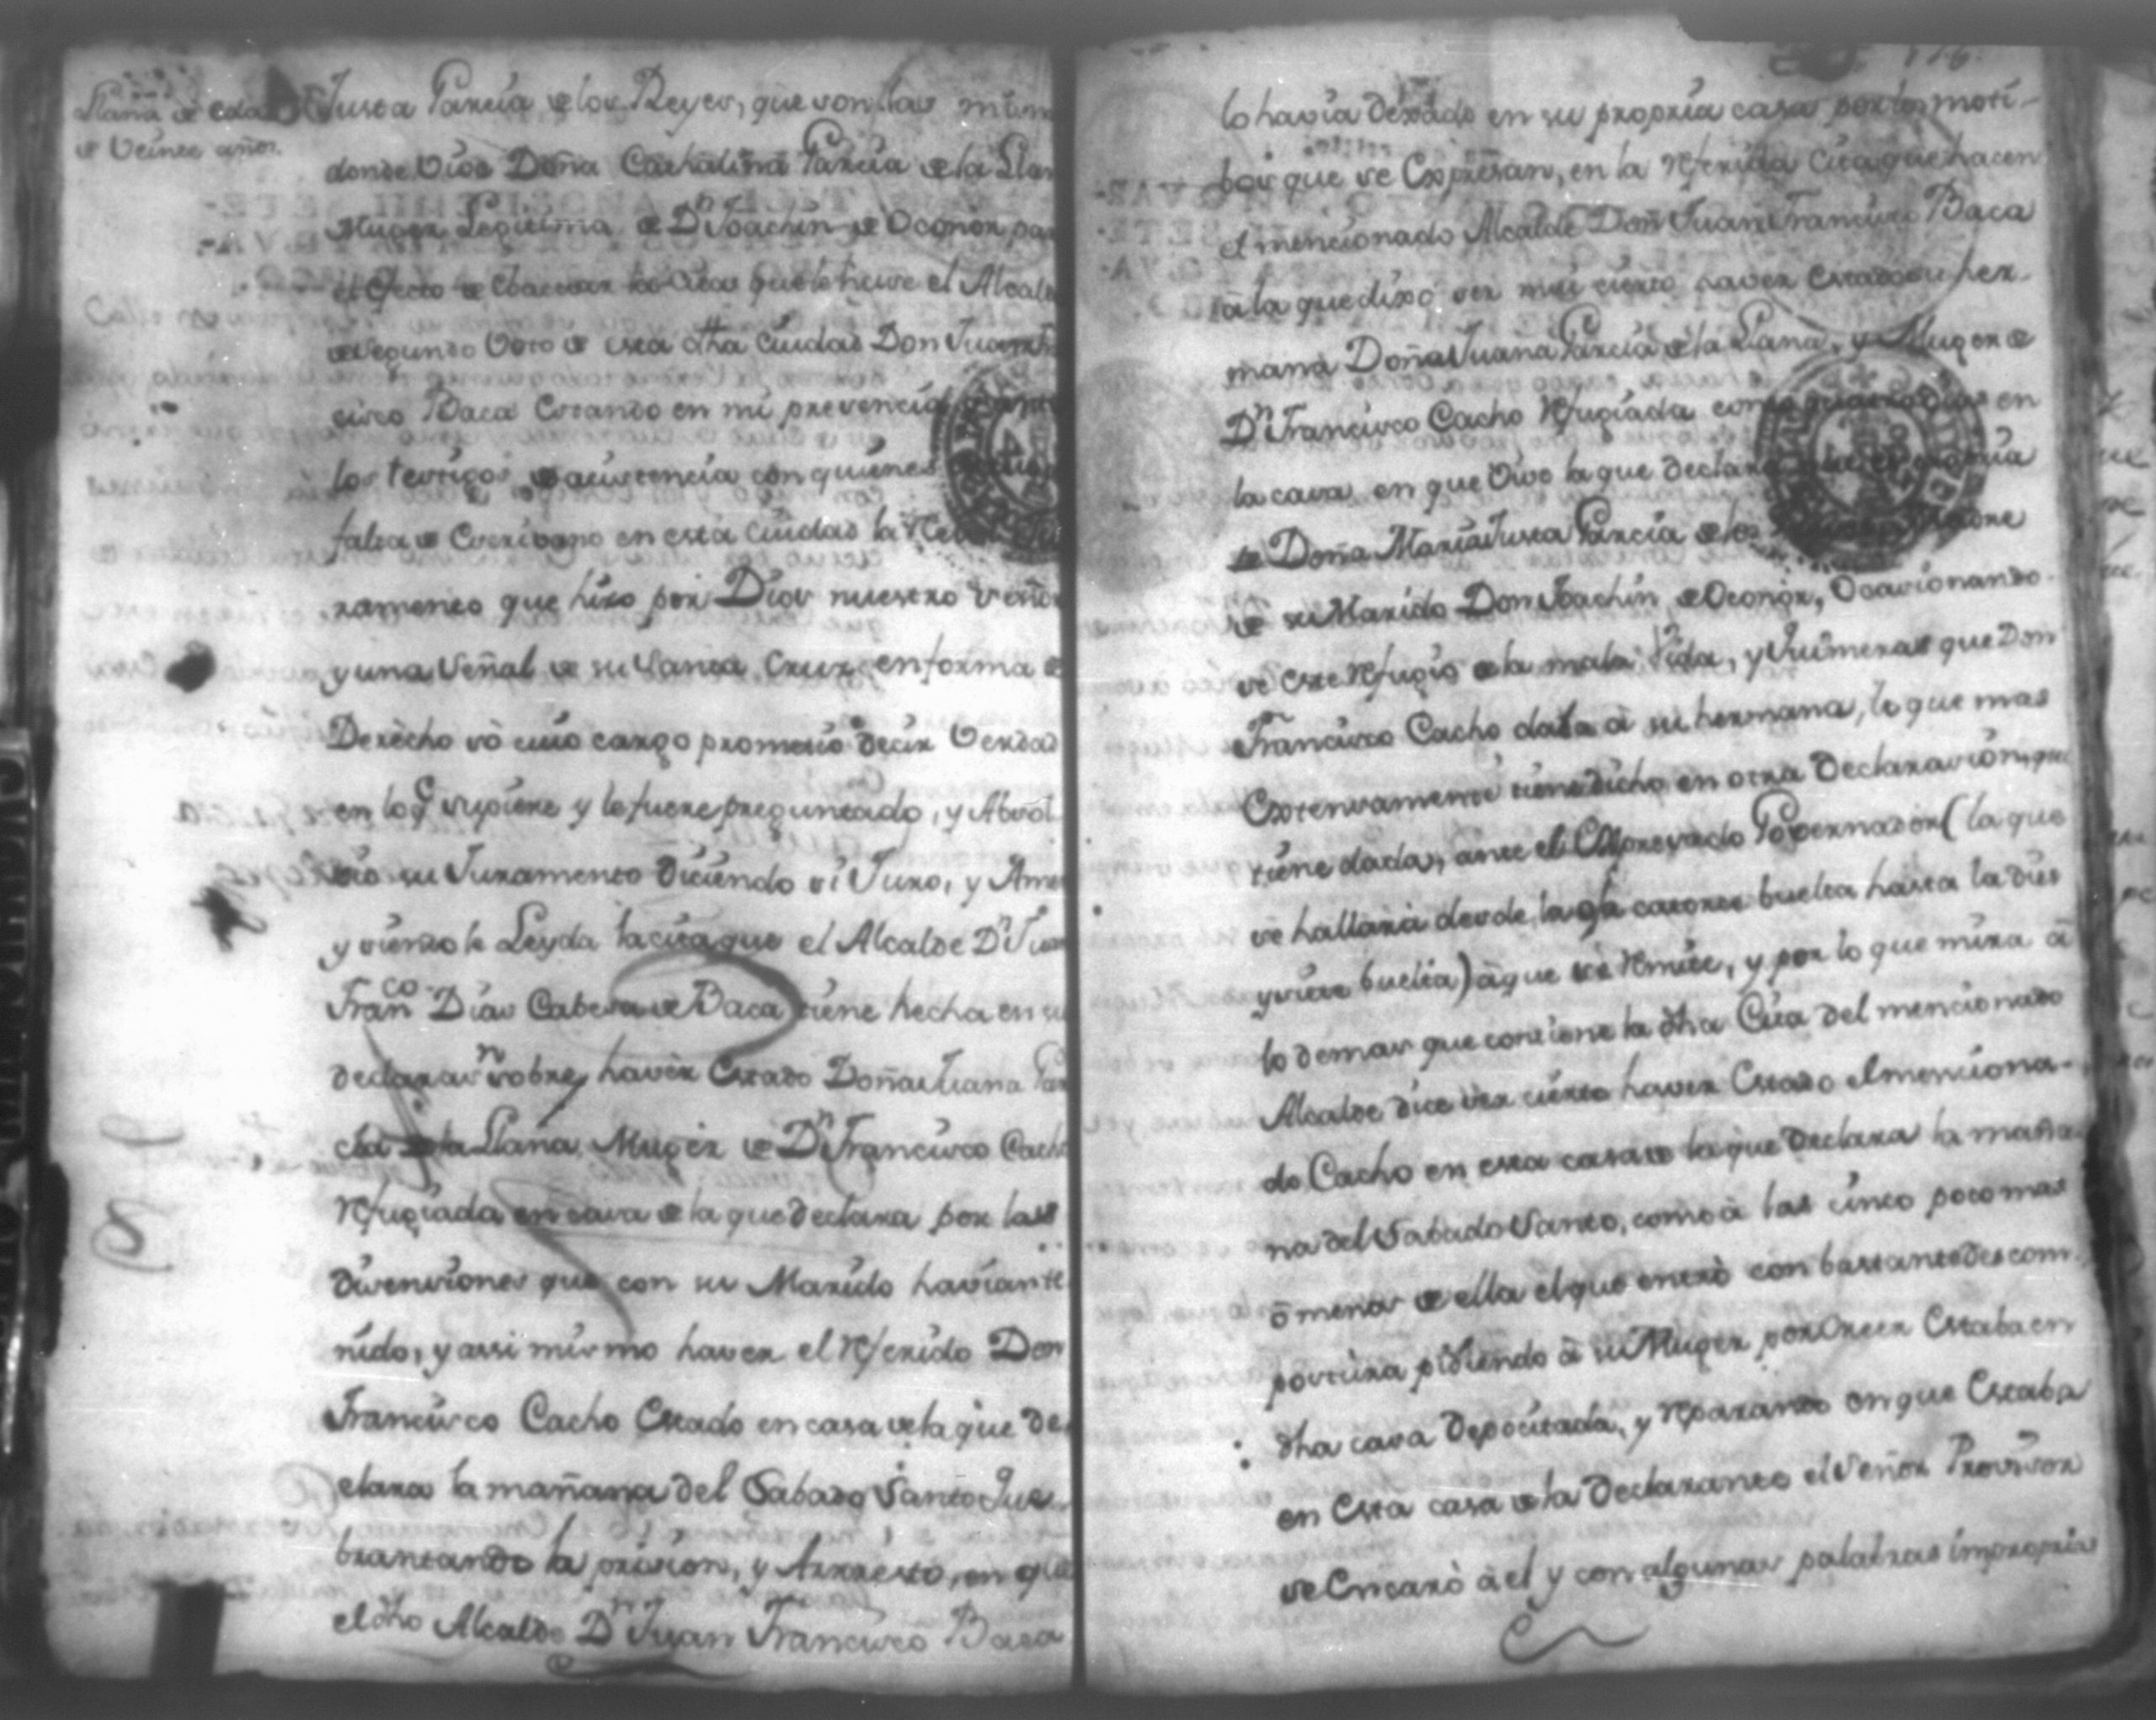 Llana de edad
de Veinte años.
Justa Garcia de los Reyes, que son las mism
donde Vive Doña Cathalina Garcia de la Llan
Muger Legitima de Dn Joachin de Oconor, par
el efecto de Evacuar las citas que le hiciese el Alcalde
de segundo Voto de esta dha Ciudad Don Juan Fr
cisco Baca Estando en mi presencia
los testigos de asistencia con quienes
falta de Escrivano en esta Ciudad la
ramento que hizo por Dios nuestro Señor
y una Señal de su Santa Cruz en forma de
Derecho só cuio cargo prometió decir Verdad
en lo q supiere y le fuere preguntado, y Absol
vio su Juramento diciendo si Juro, y Amen
y siendole Leyda la cita que el Alcalde Dn Juan
Franco Dias Cabesa de Baca tiene hecha en su
declarasn sobre haver Estado Doña Juana Gar
cia de la Llana Muger de Dn Francisco Cacho
Refugiada en casa de la que declara por las
disenciones que con su Marido havian te
nido, y assi mismo haver el Referido Don
Francisco Cacho Estado en casa de la que de
clara la mañana del Sabado Santo que
brantando la pricion, y Arresto, en que
el dho Alcalde Dn Juan Francisco Baca
116.
lo havia dexado en su propria casa por los moti-
bos que se Expresan, en la Referida Cita que hacen
el mencionado Alcalde Don Juan Francisco Baca
a la que dixo ser mui cierto haver Estado su her-
mana Doña Juana Garcia de la Llana, y Muger de
Dn Francisco Cacho Refugiada como quatro dias en
la casa en que Vive la que declara
de Doña Maria Justa Garcia de los
de su Marido Don Joachin de Oconor, Ocacionando-
se este Refugio de la mala Vida, y que Don
Francisco Cacho daba a su hermana, lo que mas
Extensamente tiene dicho en otra Declaracion, que
tiene dada, ante el Expresado Governador (la que
se hallará desde la catorce buelta hasta la dies
y siete buelta) á que se Remite, y por lo que mira á
lo demas que contiene la dha Cita del mencionado
Alcalde dice ser cierto haver Estado el menciona-
do Cacho en esta casa de la que declara la maña
na del Sabado Santo, como á las cinco poco mas
ó menos de ella el que entró con bastante descom
postura pidiendo á su Muger por creer Estaba en
dha casa depocitada, y Reparando en que Estaba
en Esta casa de la declarante el Señor Provisor
se Encaró á el y con algunas palabras improprias